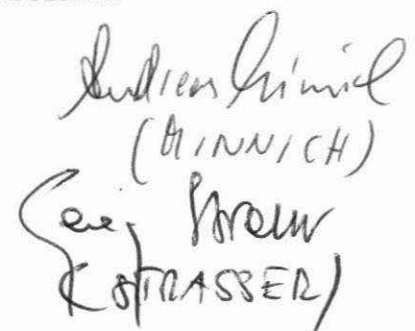 Andreas Minnich
(MINNICH)
Georg Strasser
(STRASSER)